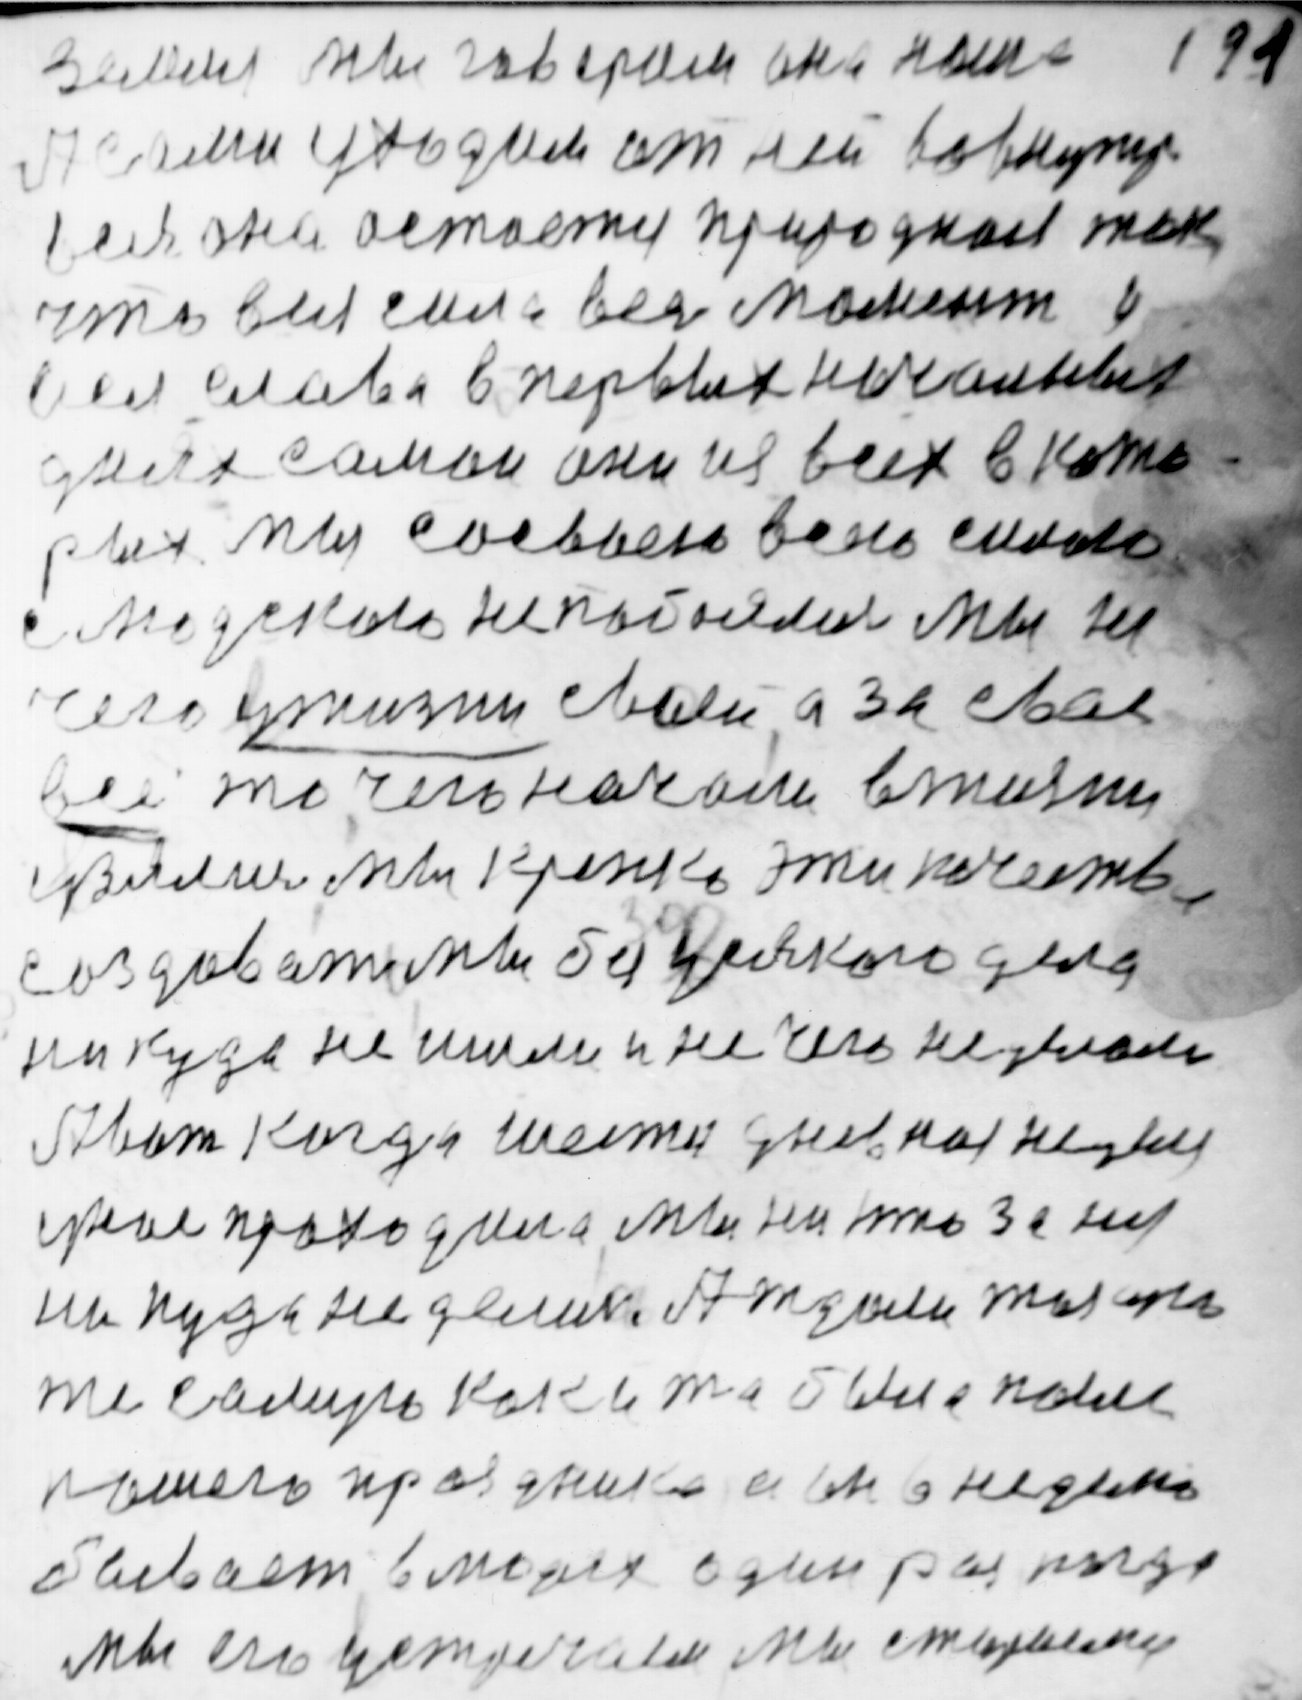 Земля мы говорим она наша 191
А сами уходим от ней вовнутрь
вся она остается природная так
что вся сила вся момент и
вся слава в первых начальных
днях самой они ия всех в кото-
рых мы своевоею всею силою
с людскою непобоялися мы не
чего у жизни своей, а за свое
всё то чего начали в жизни
узялися мы крепко эти качества
создовать мы без усякого дела
никуда не шли и не чего не делали
А вот когда шести дневная неделя
уное проходила, мы ни что за ней
никуда не делись. А ждали такую
же самую как и та была поля
нашего праздника а он в неделю
бывает в людях один раз когда
мы его устречаем мы стараемся